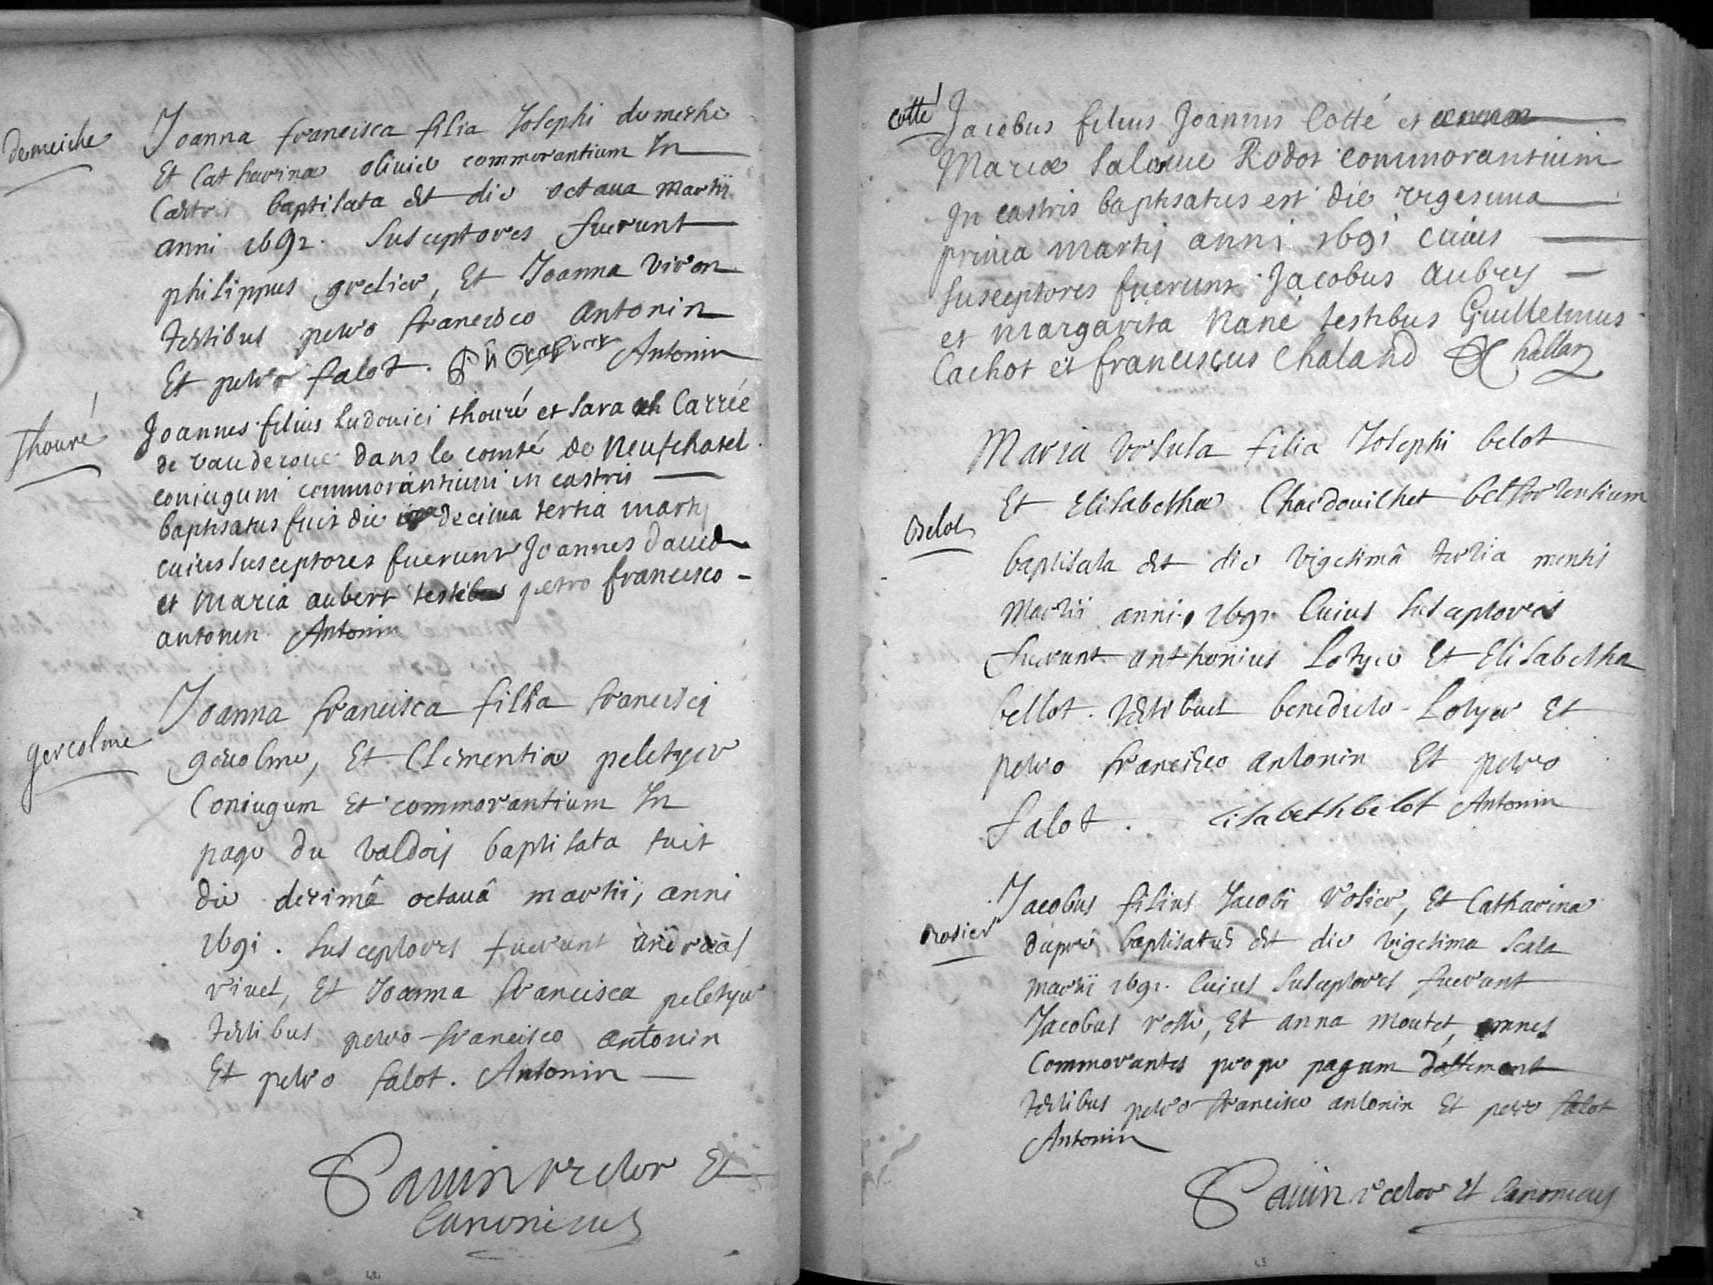 demeiche
Joanna francisca filia Josephi demeshe
Et Catharinæ olivier commorantium In
Castris baptisata est die octava martij
anni 1691. Susceptores fuerunt
philippus grelier, Et Joanna viron
testibus petro francisco antonin
Et petro salot. Antonin
Thouré
Joannes filius Ludovici thouré et Sara Carrée
de vauderoue dans le comté de Neufchatel
coniugum commorantium in castris
baptisatus fuit die decima tertia martij
cuius susceptores fuerunt Joannes david
et Maria aubert testibus petro francisco
antonin Antonin
gercolme
Joanna francisca filia francisci
gercolme, Et Clementiæ peletyer
Coniugum Et commorantium In
pago du Valdoy baptisata fuit
die decimâ octauâ martii, anni
1691. Susceptores fuerunt andreas
rivet, Et Joanna francisca peletyer
testibus petro francisco antonin
Et petro salot. Antonin
rector Et
Canonicus
Cotté
Jacobus filius Joannis Cotté et
Mariæ Salome Rodot commorantium
In castris baptisatus est die vigesima
prima martij anni 1691 cuius
susceptores fuerunt Jacobus aubry
et margarita Nané testibus Guillelmus
Cachot et franciscus Chaland Challan
Belot
Maria Vrsula filia Josephi belot
Et Elisabethæ Chardouilhet belfortensium
baptisata est die vigesimâ tertia mensis
Martii anni 1691 Cuius susceptores
fuerunt anthonius Lotyer Et Elisabetha
bellot. testibus benedicto Lotyer Et
petro francisco antonin Et petro
salot. Elisabeth belot Antonin
rosier
Jacobus filius Jacobi rosier, Et Catharina
dupré baptisatus est die vigesima sexta
martii 1691. Cuius susceptores fuerunt
Jacobus rossé, Et anna moutet, omnes
Commorantes prope pagum d'attemont
testibus petro francisco antonin Et petro salot
Antonin
rector Et Canonicus